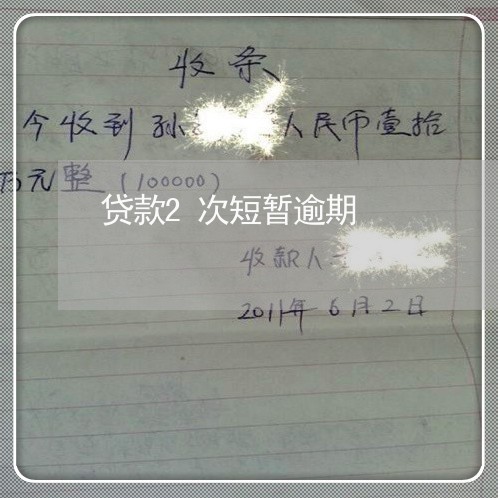 收条
今收到孙 人民币壹拾
万元整(100000)
贷款2 次短暂逾期
收款人
2011年6月2日